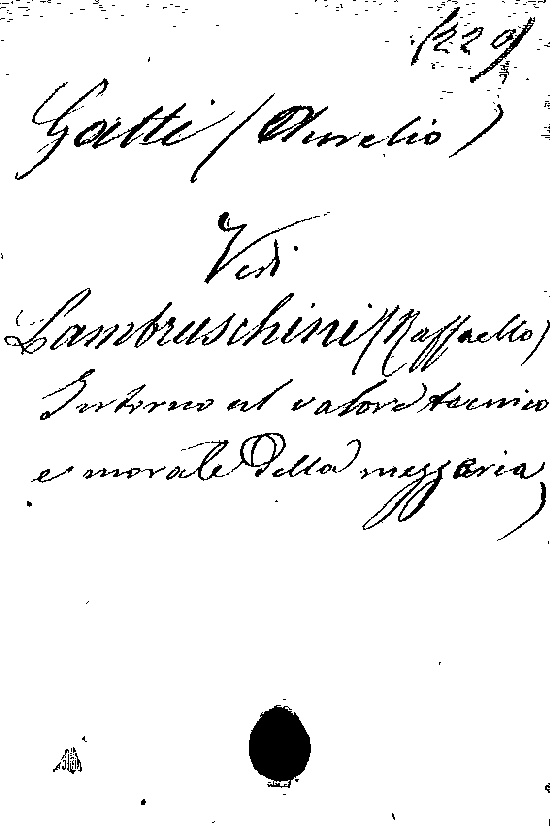 (229)
Gatti (Aurelio)
Vedi
Lambruschini (Raffaello)
Intorno al valore tecnico
e morale della mezzeria